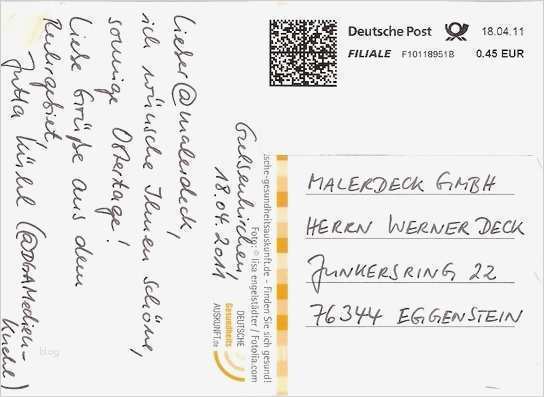 Gelsenkirchen,
18.04.2011
Lieber @malerdeck,
ich wünsche Ihnen schöne,
sonnige Ostertage!
Liebe Grüße aus dem
Ruhrgebiet,
Jutta Kühl (@DGAMedien-
Kuehl)
zsche-gesundheitsauskunft.de - Finden Sie sich gesund!
Foto: © lisa engelstädter / Fotolia.com
DEUTSCHE
Gesundheits
AUSKUNFT.de
Deutsche Post 18.04.11
FILIALE F101189518 0.45 EUR
MALERDECK GMBH
HERRN WERNER DECK
JUNKERSRING 22
76344 EGGENSTEIN
blog